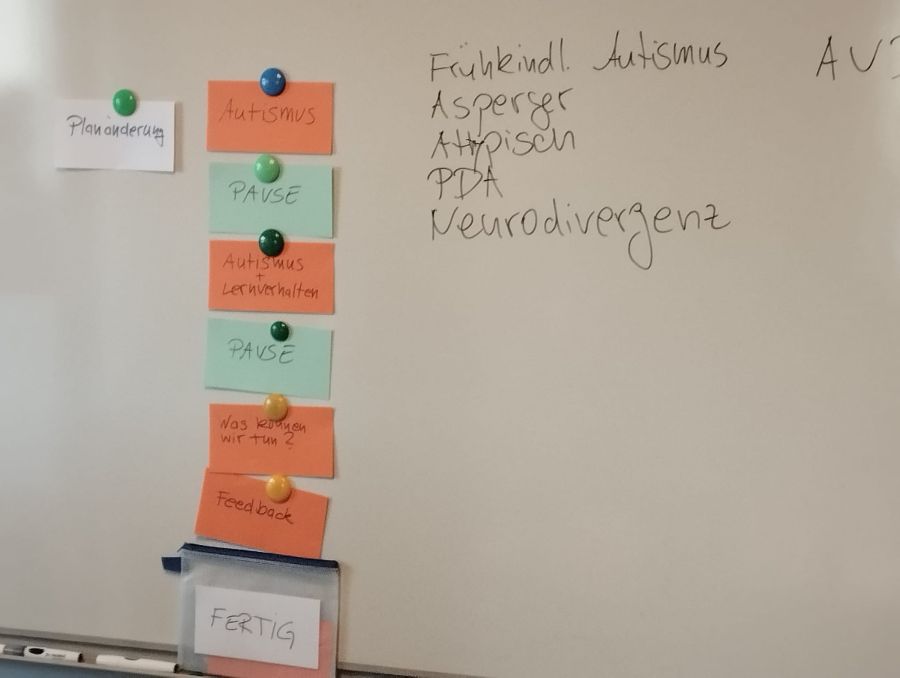 Planänderung
Autismus
PAUSE
Autismus
+
Lernverhalten
PAUSE
Was können
wir tun?
Feedback
FERTIG
Frühkindl. Autismus
Asperger
Atypisch
PDA
Neurodivergenz